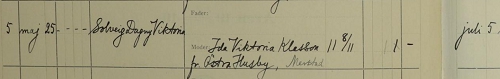 Fader:
5 maj 25 - - - - Solveig Dagny Viktoria
Moder: Ida Viktoria Klasson 11 8/11 1 - juli 5
fr. Petra Husby,